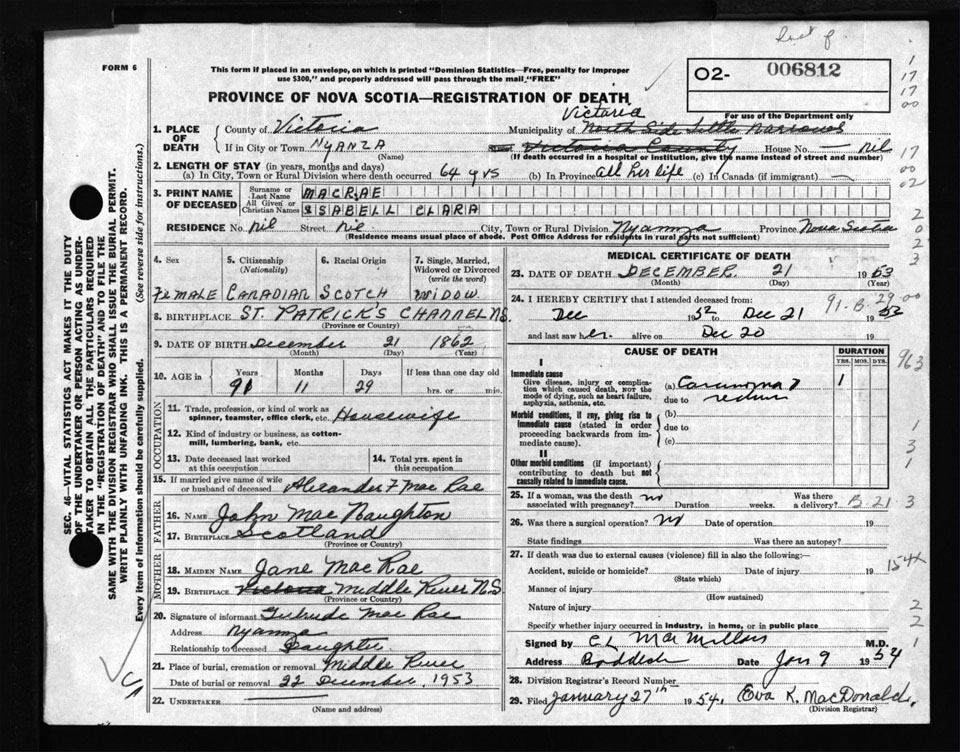 FORM 6
This form if placed in an envelope, on which is printed "Dominion Statistics—Free, penalty for improper
use $300," and properly addressed will pass through the mail "FREE"
PROVINCE OF NOVA SCOTIA—REGISTRATION OF DEATH
02- 006812
For use of the Department only
1. PLACE OF DEATH
County of Victoria
Municipality of Victoria North Side Little Narrows
If in City or Town NYANZA
(Name)
Victoria County House No. — nil
(If death occurred in a hospital or institution, give the name instead of street and number)
2. LENGTH OF STAY (in years, months and days)
(a) In City, Town or Rural Division where death occurred 64 yrs (b) In Province all her life (c) In Canada (if immigrant) —
3. PRINT NAME OF DECEASED
Surname or Last Name MACRAE
All Given or Christian Names ISABELL CLARA
RESIDENCE No. nil Street nil City, Town or Rural Division Nyanza Province Nova Scotia
(Residence means usual place of abode. Post Office Address for residents in rural parts not sufficient)
4. Sex
FEMALE
5. Citizenship (Nationality)
CANADIAN
6. Racial Origin
SCOTCH
7. Single, Married, Widowed or Divorced (write the word)
WIDOW
8. BIRTHPLACE ST. PATRICK'S CHANNEL N.S.
(Province or Country)
9. DATE OF BIRTH December 21 1862
(Month) (Day) (Year)
10. AGE in
Years Months Days If less than one day old
91 11 29 hrs. or min.
OCCUPATION
11. Trade, profession, or kind of work as spinner, teamster, office clerk, etc. Housewife
12. Kind of industry or business, as cotton-mill, lumbering, bank, etc.
13. Date deceased last worked at this occupation
14. Total yrs. spent in this occupation
15. If married give name of wife or husband of deceased Alexander F Mac Rae
FATHER
16. NAME John Mac Naughton
17. BIRTHPLACE Scotland
(Province or Country)
MOTHER
18. MAIDEN NAME Jane Mac Rae
19. BIRTHPLACE Victoria Middle River N.S
(Province or Country)
20. Signature of informant Gertrude Mac Rae
Address Nyanza
Relationship to deceased Daughter
21. Place of burial, cremation or removal Middle River
Date of burial or removal 22 December, 1953
22. UNDERTAKER
(Name and address)
MEDICAL CERTIFICATE OF DEATH
23. DATE OF DEATH DECEMBER 21 1953
(Month) (Day)
24. I HEREBY CERTIFY that I attended deceased from:
91-B-29-00
Dec 1952 to Dec 21 1953
and last saw her alive on Dec 20 19
CAUSE OF DEATH
DURATION
YRS. MOS. DYS.
I
Immediate cause
Give disease, injury or complication which caused death, NOT the mode of dying, such as heart failure, asphyxia, asthenia, etc.
(a) Carcinoma 1
due to rectum
Morbid conditions, if any, giving rise to immediate cause (stated in order proceeding backwards from immediate cause).
(b)
due to
(c)
II
Other morbid conditions (if important) contributing to death but not causally related to immediate cause.
25. If a woman, was the death associated with pregnancy? no Duration weeks. Was there a delivery? B.21.3
26. Was there a surgical operation? no Date of operation 19
State findings Was there an autopsy?
27. If death was due to external causes (violence) fill in also the following:—
Accident, suicide or homicide? Date of injury 19
(State which)
Manner of injury
(How sustained)
Nature of injury
Specify whether injury occurred in industry, in home, or in public place
Signed by C L MacMillan M.D.
Address Baddeck Date Jan 9 1954
28. Division Registrar's Record Number
29. Filed January 27th 1954. Eva K. MacDonald.
(Division Registrar)
SEC. 46—VITAL STATISTICS ACT MAKES IT THE DUTY
OF THE UNDERTAKER OR PERSON ACTING AS UNDER-
TAKER TO OBTAIN ALL THE PARTICULARS REQUIRED
IN THE "REGISTRATION OF DEATH" AND TO FILE THE
SAME WITH THE DIVISION REGISTRAR WHO SHALL ISSUE THE BURIAL PERMIT.
WRITE PLAINLY WITH UNFADING INK. THIS IS A PERMANENT RECORD.
Every item of information should be carefully supplied. (See reverse side for instructions.)
1
17
17
00
17
00
02
2
0
2
3
963
1
3
1
154x
2
2
1